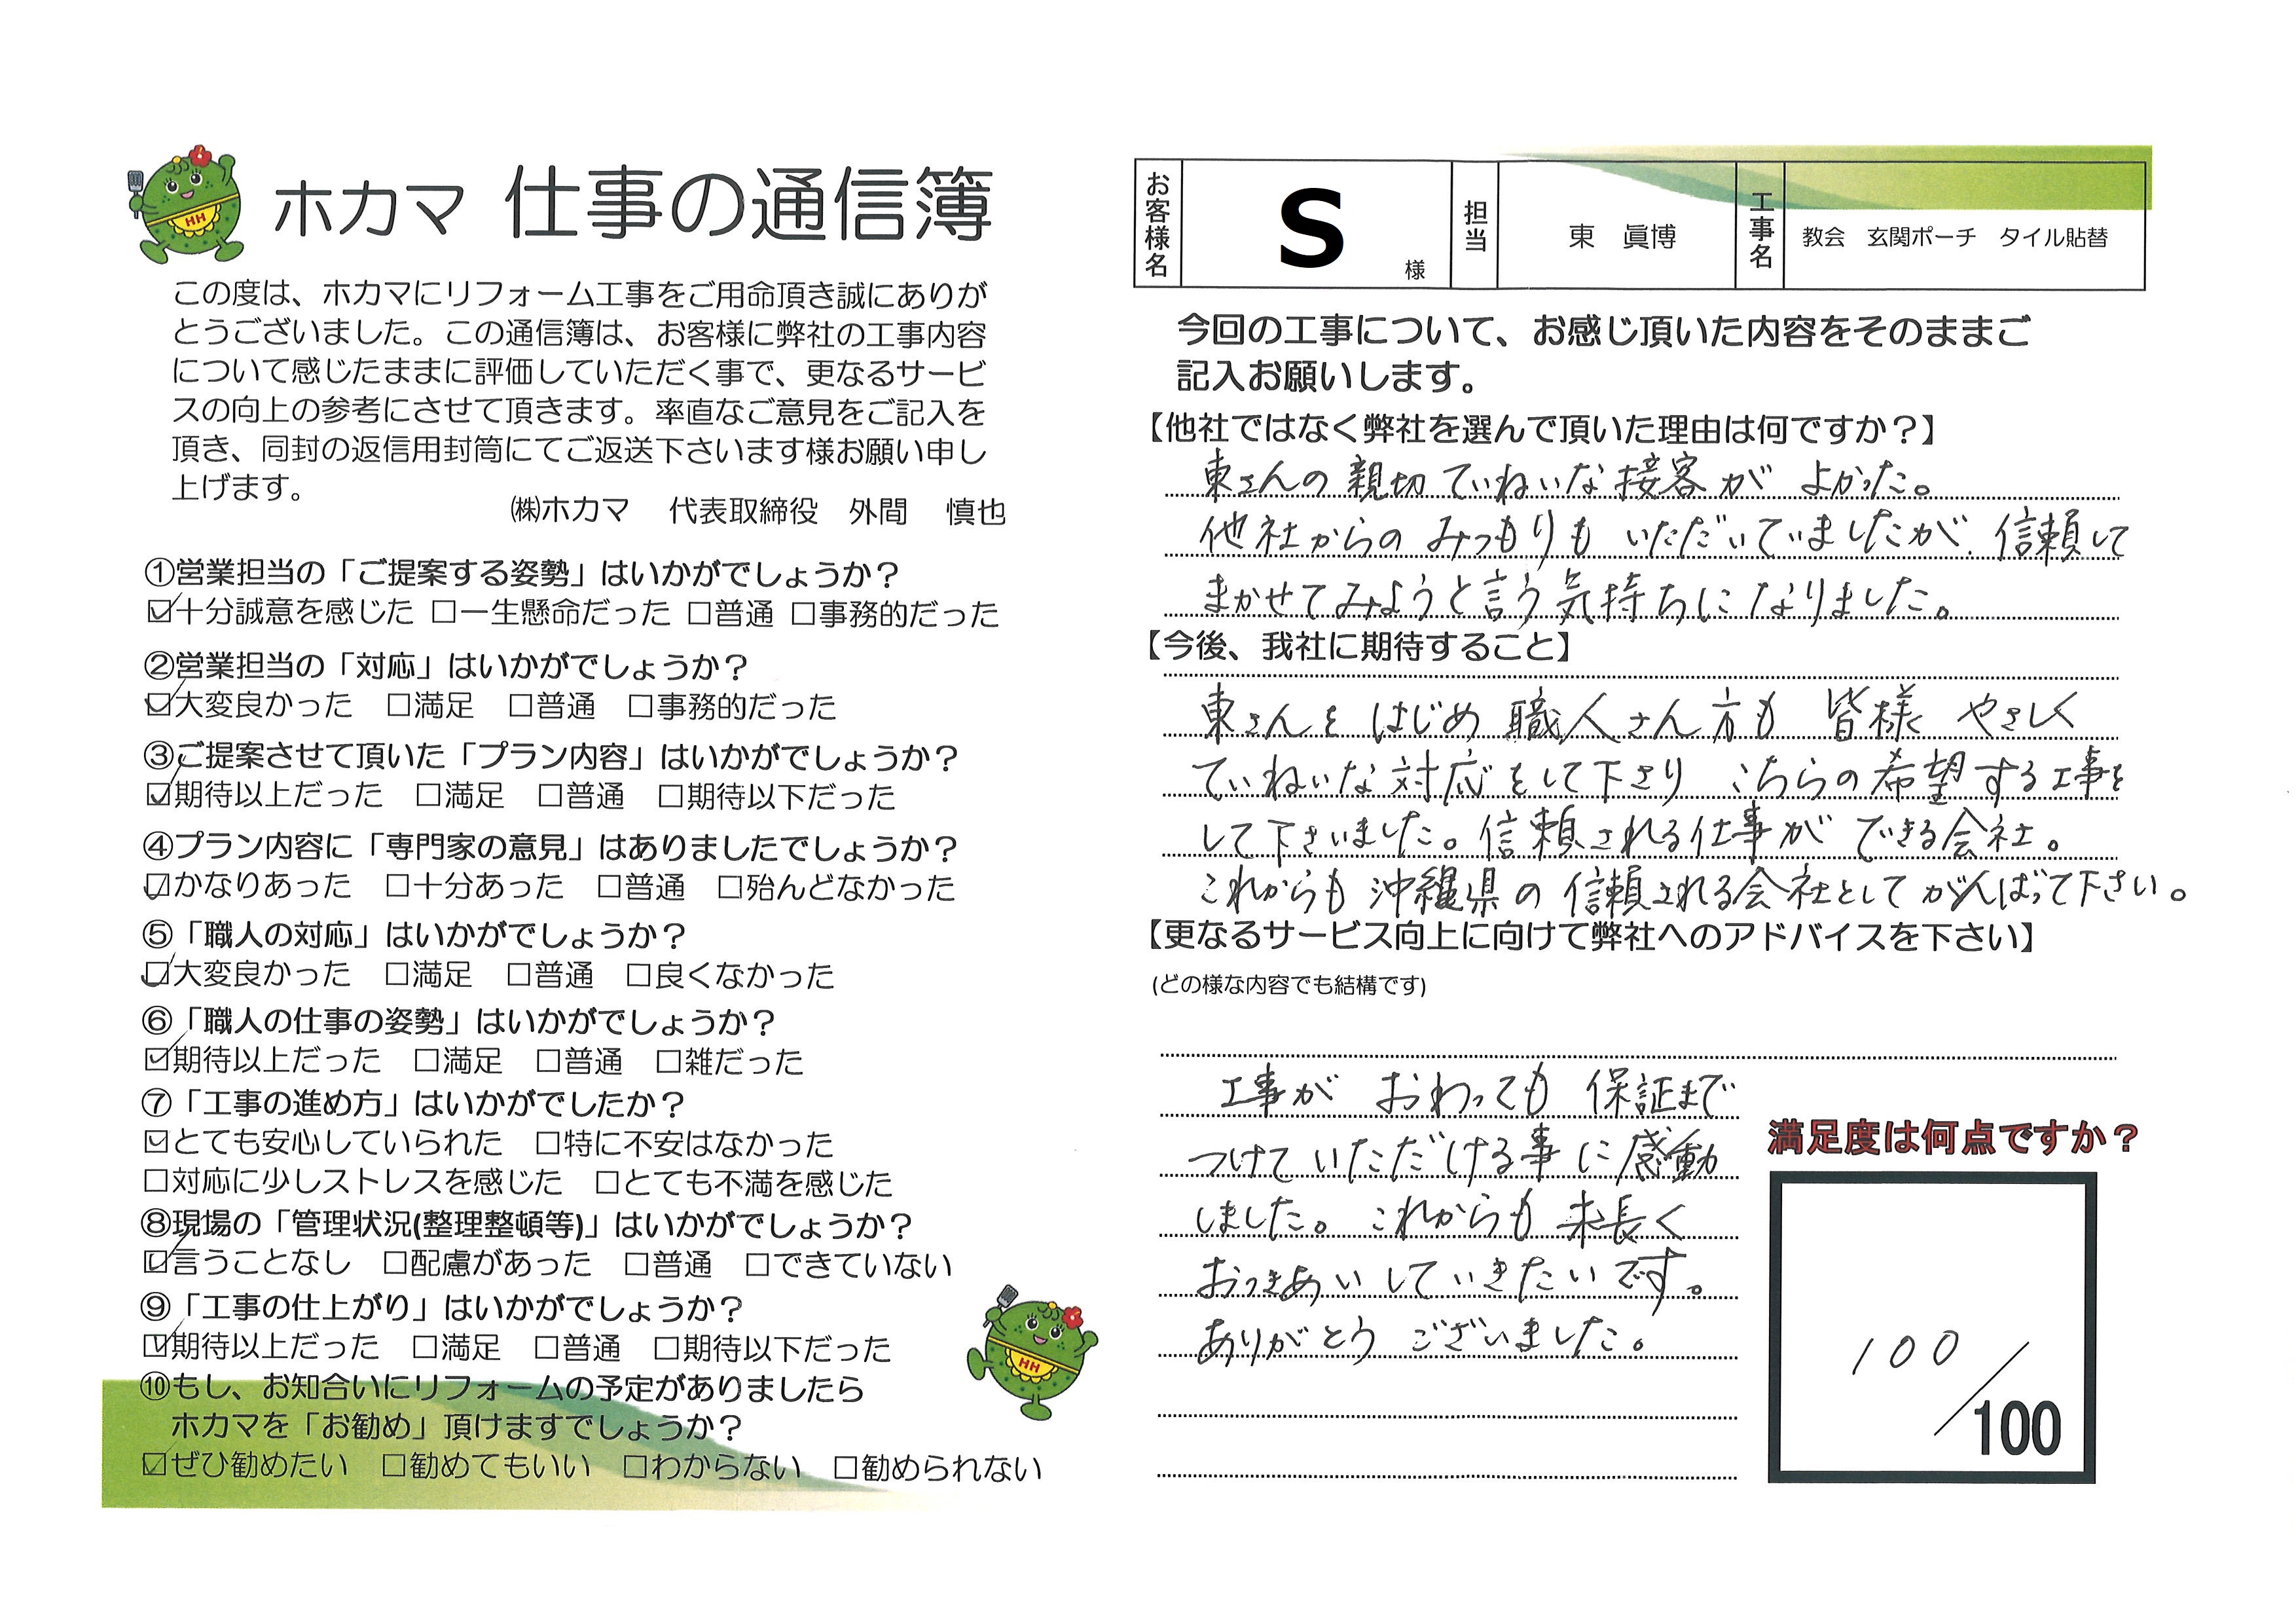 ホカマ 仕事の通信簿
この度は、ホカマにリフォーム工事をご用命頂き誠にありが
とうございました。この通信簿は、お客様に弊社の工事内容
について感じたままに評価していただく事で、更なるサービ
スの向上の参考にさせて頂きます。率直なご意見をご記入を
頂き、同封の返信用封筒にてご返送下さいます様お願い申し
上げます。
㈱ホカマ 代表取締役 外間 慎也
①営業担当の「ご提案する姿勢」はいかがでしょうか？
☑十分誠意を感じた □一生懸命だった □普通 □事務的だった
②営業担当の「対応」はいかがでしょうか？
☑大変良かった □満足 □普通 □事務的だった
③ご提案させて頂いた「プラン内容」はいかがでしょうか？
☑期待以上だった □満足 □普通 □期待以下だった
④プラン内容に「専門家の意見」はありましたでしょうか？
☑かなりあった □十分あった □普通 □殆んどなかった
⑤「職人の対応」はいかがでしょうか？
☑大変良かった □満足 □普通 □良くなかった
⑥「職人の仕事の姿勢」はいかがでしょうか？
☑期待以上だった □満足 □普通 □雑だった
⑦「工事の進め方」はいかがでしたか？
☑とても安心していられた □特に不安はなかった
□対応に少しストレスを感じた □とても不満を感じた
⑧現場の「管理状況(整理整頓等)」はいかがでしょうか？
☑言うことなし □配慮があった □普通 □できていない
⑨「工事の仕上がり」はいかがでしょうか？
☑期待以上だった □満足 □普通 □期待以下だった
⑩もし、お知合いにリフォームの予定がありましたら
ホカマを「お勧め」頂けますでしょうか？
☑ぜひ勧めたい □勧めてもいい □わからない □勧められない
HH
HH
お客様名 S 様 担当 東 眞博 工事名 教会 玄関ポーチ タイル貼替
今回の工事について、お感じ頂いた内容をそのままご
記入お願いします。
【他社ではなく弊社を選んで頂いた理由は何ですか？】
東さんの親切ていねいな接客が よかった。
他社からの みつもりも いただいていましたが、信頼して
まかせてみようと言う気持ちになりました。
【今後、我社に期待すること】
東さんをはじめ 職人さん方も 皆様 やさしく
ていねいな対応をして下さり こちらの希望する工事を
して下さいました。信頼される仕事が できる会社。
これからも 沖縄県の 信頼される会社として がんばって下さい。
【更なるサービス向上に向けて弊社へのアドバイスを下さい】
(どの様な内容でも結構です)
工事が おわっても 保証まで
つけていただける事に感動
しました。これからも 末長く
おつきあいしていきたいです。
ありがとう ございました。
満足度は何点ですか？
100/100